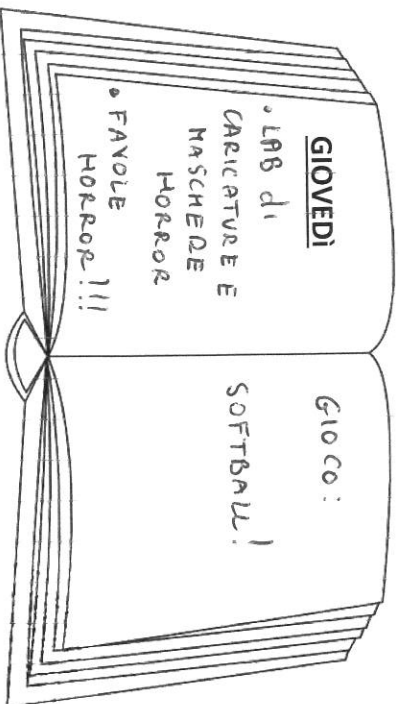 GIOVEDÌ
• LAB di
CARICATURE E
MASCHERE
HORROR
• FAVOLE
HORROR!!!
GIOCO:
SOFTBALL!